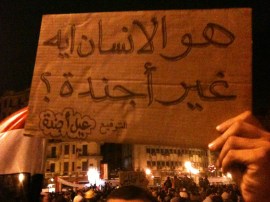 هو الانسان ايه
غير أجندة ؟
التوقيع جيل أجندة